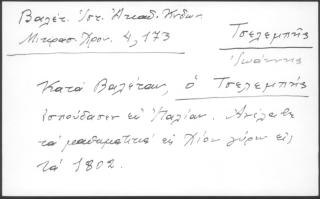 Βαλέτ. Ἱστ. Ἀκαδ. Κυδων
Μιτρασ. Χρον. 4, 173
Τσελεμπῆς
Ἰωάννης
Κατὰ Βαλέταν, ὁ Τσελεμπῆς
ἐσπούδασεν εἰς Ἰταλίαν.
τὰ μαθηματικὰ εἰς Χίον γύρω εἰς
τὰ 1802.